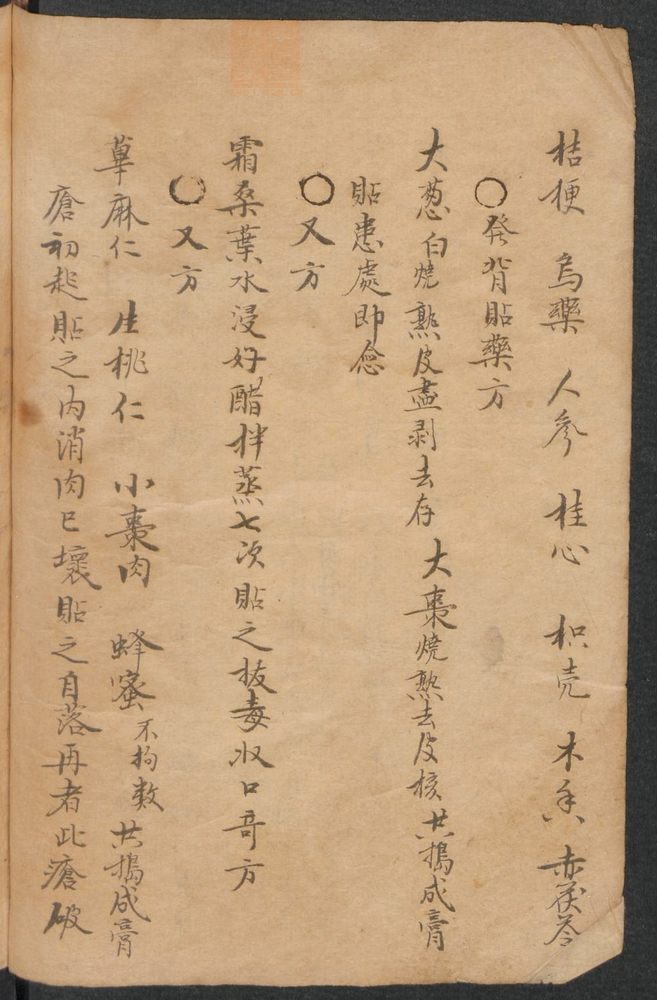 桔梗 烏藥 人參 桂心 枳壳 木香 赤茯苓
〇發背貼藥方
大葱白燒熟皮盡剥去存 大棗燒熟去皮核共搗成膏
貼患處即愈
〇又方
霜桑葉水浸好醋拌蒸七次貼之拔毒收口奇方
〇又方
萆麻仁 生桃仁 小棗肉 蜂蜜不拘数共搗成膏
瘡初起貼之内消肉已壞貼之自落再者此瘡破